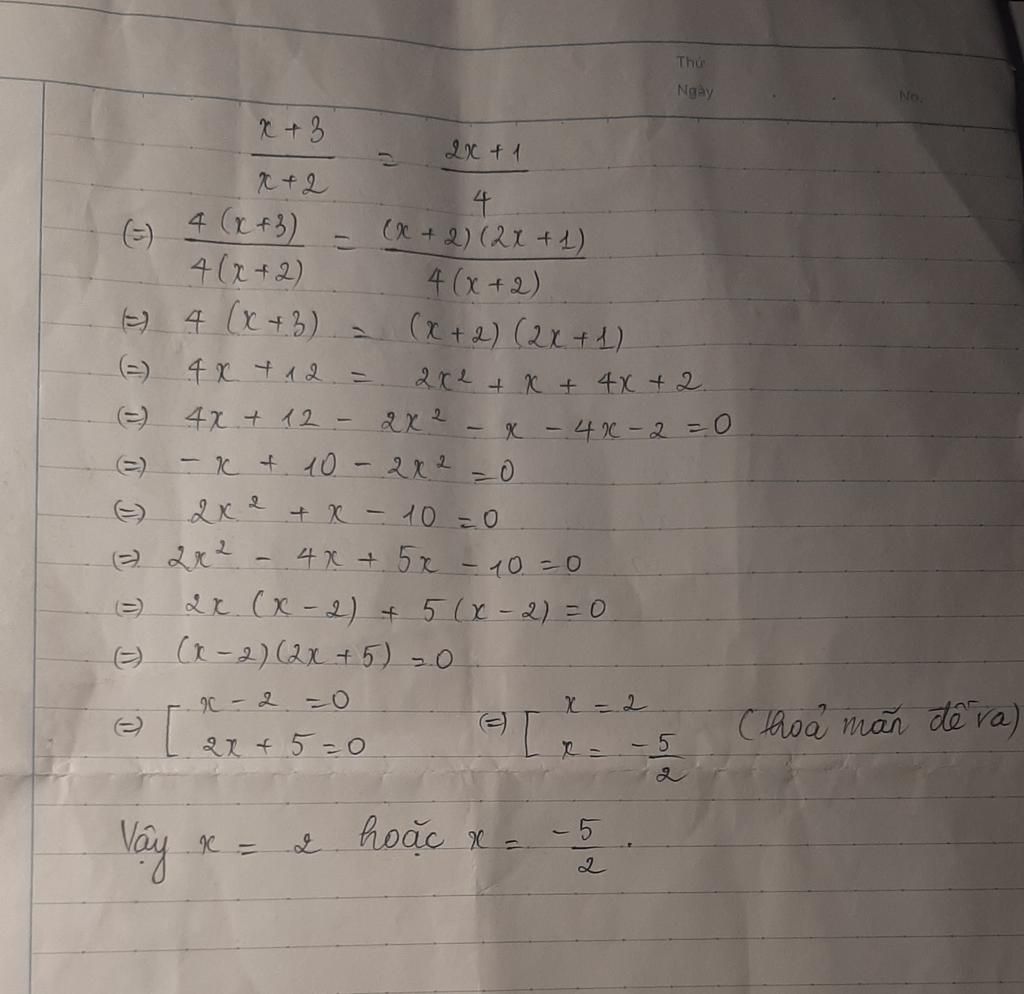 Thứ
Ngày . . No.
x + 3 / x + 2 = 2x + 1 / 4
(=) 4 (x+3) / 4(x+2) = (x+2)(2x+1) / 4(x+2)
(=) 4 (x+3) = (x+2)(2x+1)
(=) 4x + 12 = 2x² + x + 4x + 2
(=) 4x + 12 - 2x² - x - 4x - 2 = 0
(=) - x + 10 - 2x² = 0
(=) 2x² + x - 10 = 0
(=) 2x² - 4x + 5x - 10 = 0
(=) 2x (x - 2) + 5 (x - 2) = 0
(=) (x - 2)(2x + 5) = 0
(=) [ x - 2 = 0 (=) [ x = 2 (thoả mãn đề ra)
2x + 5 = 0 x = -5/2
Vậy x = 2 hoặc x = -5/2 .